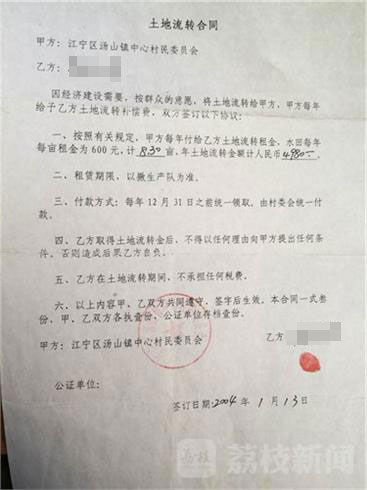 土地流转合同
甲方：江宁区汤山镇中心村民委员会
乙方：
因经济建设需要，按群众的意愿，将土地流转给甲方，甲方每年
给予乙方土地流转补偿费，双方签订以下协议：
一、按照有关规定，甲方每年付给乙方土地流转租金，水田每年
每亩租金为600元，计8.30亩，年土地流转金额计人民币4980
二、租赁期限，以撤生产队为准。
三、付款方式：每年12月31日之前统一领取。由村委会统一付
款。
四、乙方取得土地流转金后，不得以任何理由向甲方提出任何条
件。否则造成后果乙方自负。
五、乙方在土地流转期间，不承担任何税费。
六、以上内容甲、乙双方共同遵守，签字后生效。本合同一式叁
份，甲、乙双方各执壹份，公证单位存档壹份。
甲方：江宁区汤山镇中心村民委员会
乙方
公证单位：
签订日期：2004年1月13日
荔枝新闻